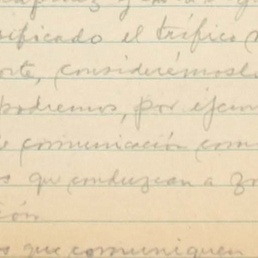 sificado el tráfico
orte, considerémosl
podremos, por ejem
e comunicación com
s que conduzcan a zo
ión
os que comuniquen